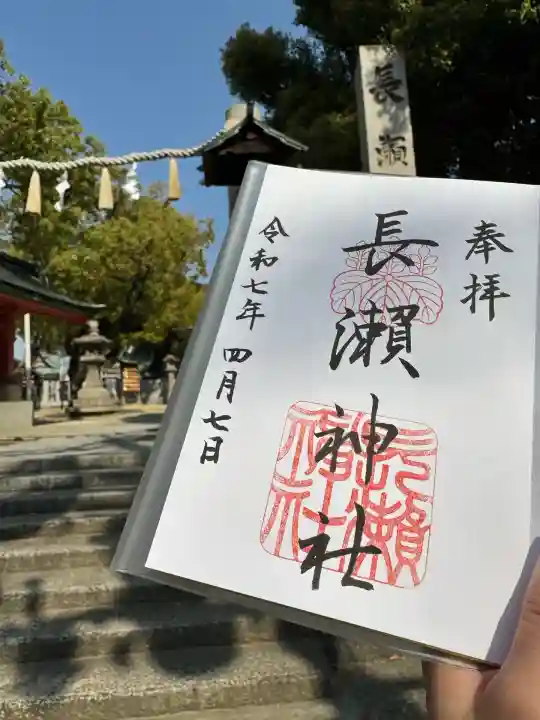 長瀬
奉拝
長瀬神社
長瀬神社
令和七年四月七日